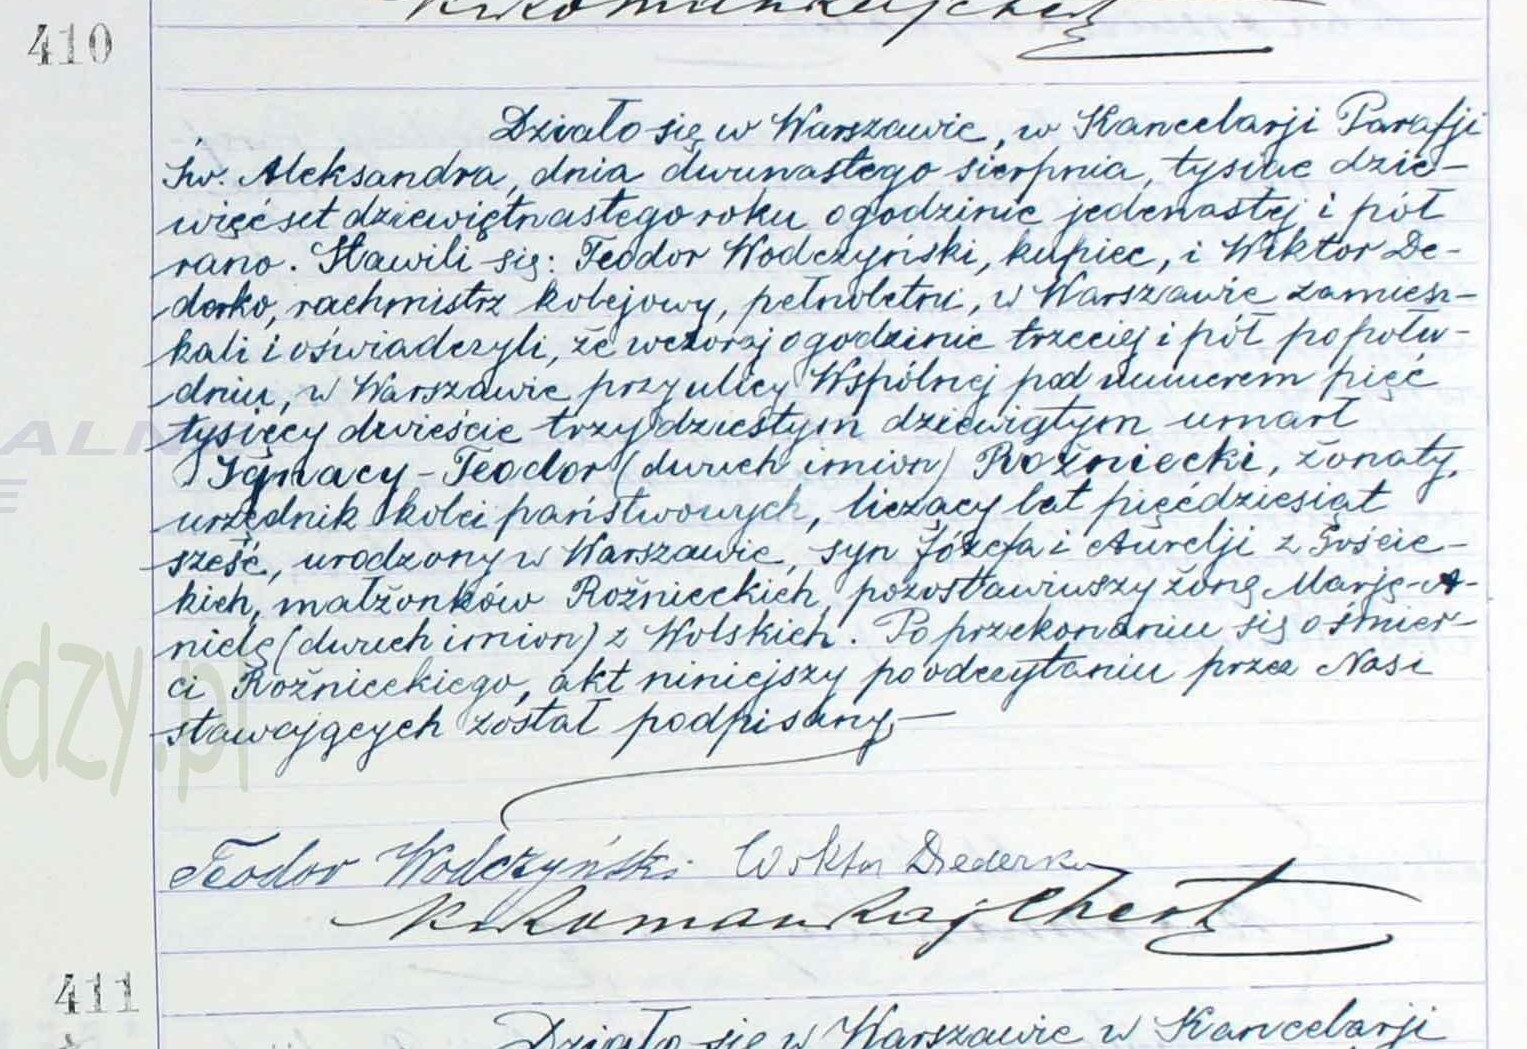 410
Działo się w Warszawie, w Kancelarji Parafji
Św. Aleksandra, dnia dwunastego sierpnia, tysiąc dzie-
więćset dziewiętnastego roku o godzinie jedenastej i pół
rano. Stawili się: Teodor Wodczyński, kupiec, i Wiktor De-
derko, rachmistrz kolejowy, pełnoletni, w Warszawie zamiesz-
kali i oświadczyli, że wczoraj o godzinie trzeciej i pół popołu-
dniu, w Warszawie przy ulicy Wspólnej pod numerem pięć
tysięcy dwieście trzydziestym dziewiątym umarł
Ignacy-Teodor (dwuch imion) Rożniecki, żonaty,
urzędnik kolei państwowych, liczący lat pięćdziesiąt
sześć, urodzony w Warszawie, syn Józefa i Aurelji z Gościc-
kich, małżonków Rożnieckich, pozostawiwszy żonę Marję-A-
nielę (dwuch imion) z Wolskich. Po przekonaniu się o śmier-
ci Rożnieckiego, akt niniejszy po odczytaniu przez Nas i
stawających został podpisany.—
Teodor Wodczyński Wiktor Dederko
Roman Rajchert
411
Działo się w Warszawie w Kancelarji
dzy.pl